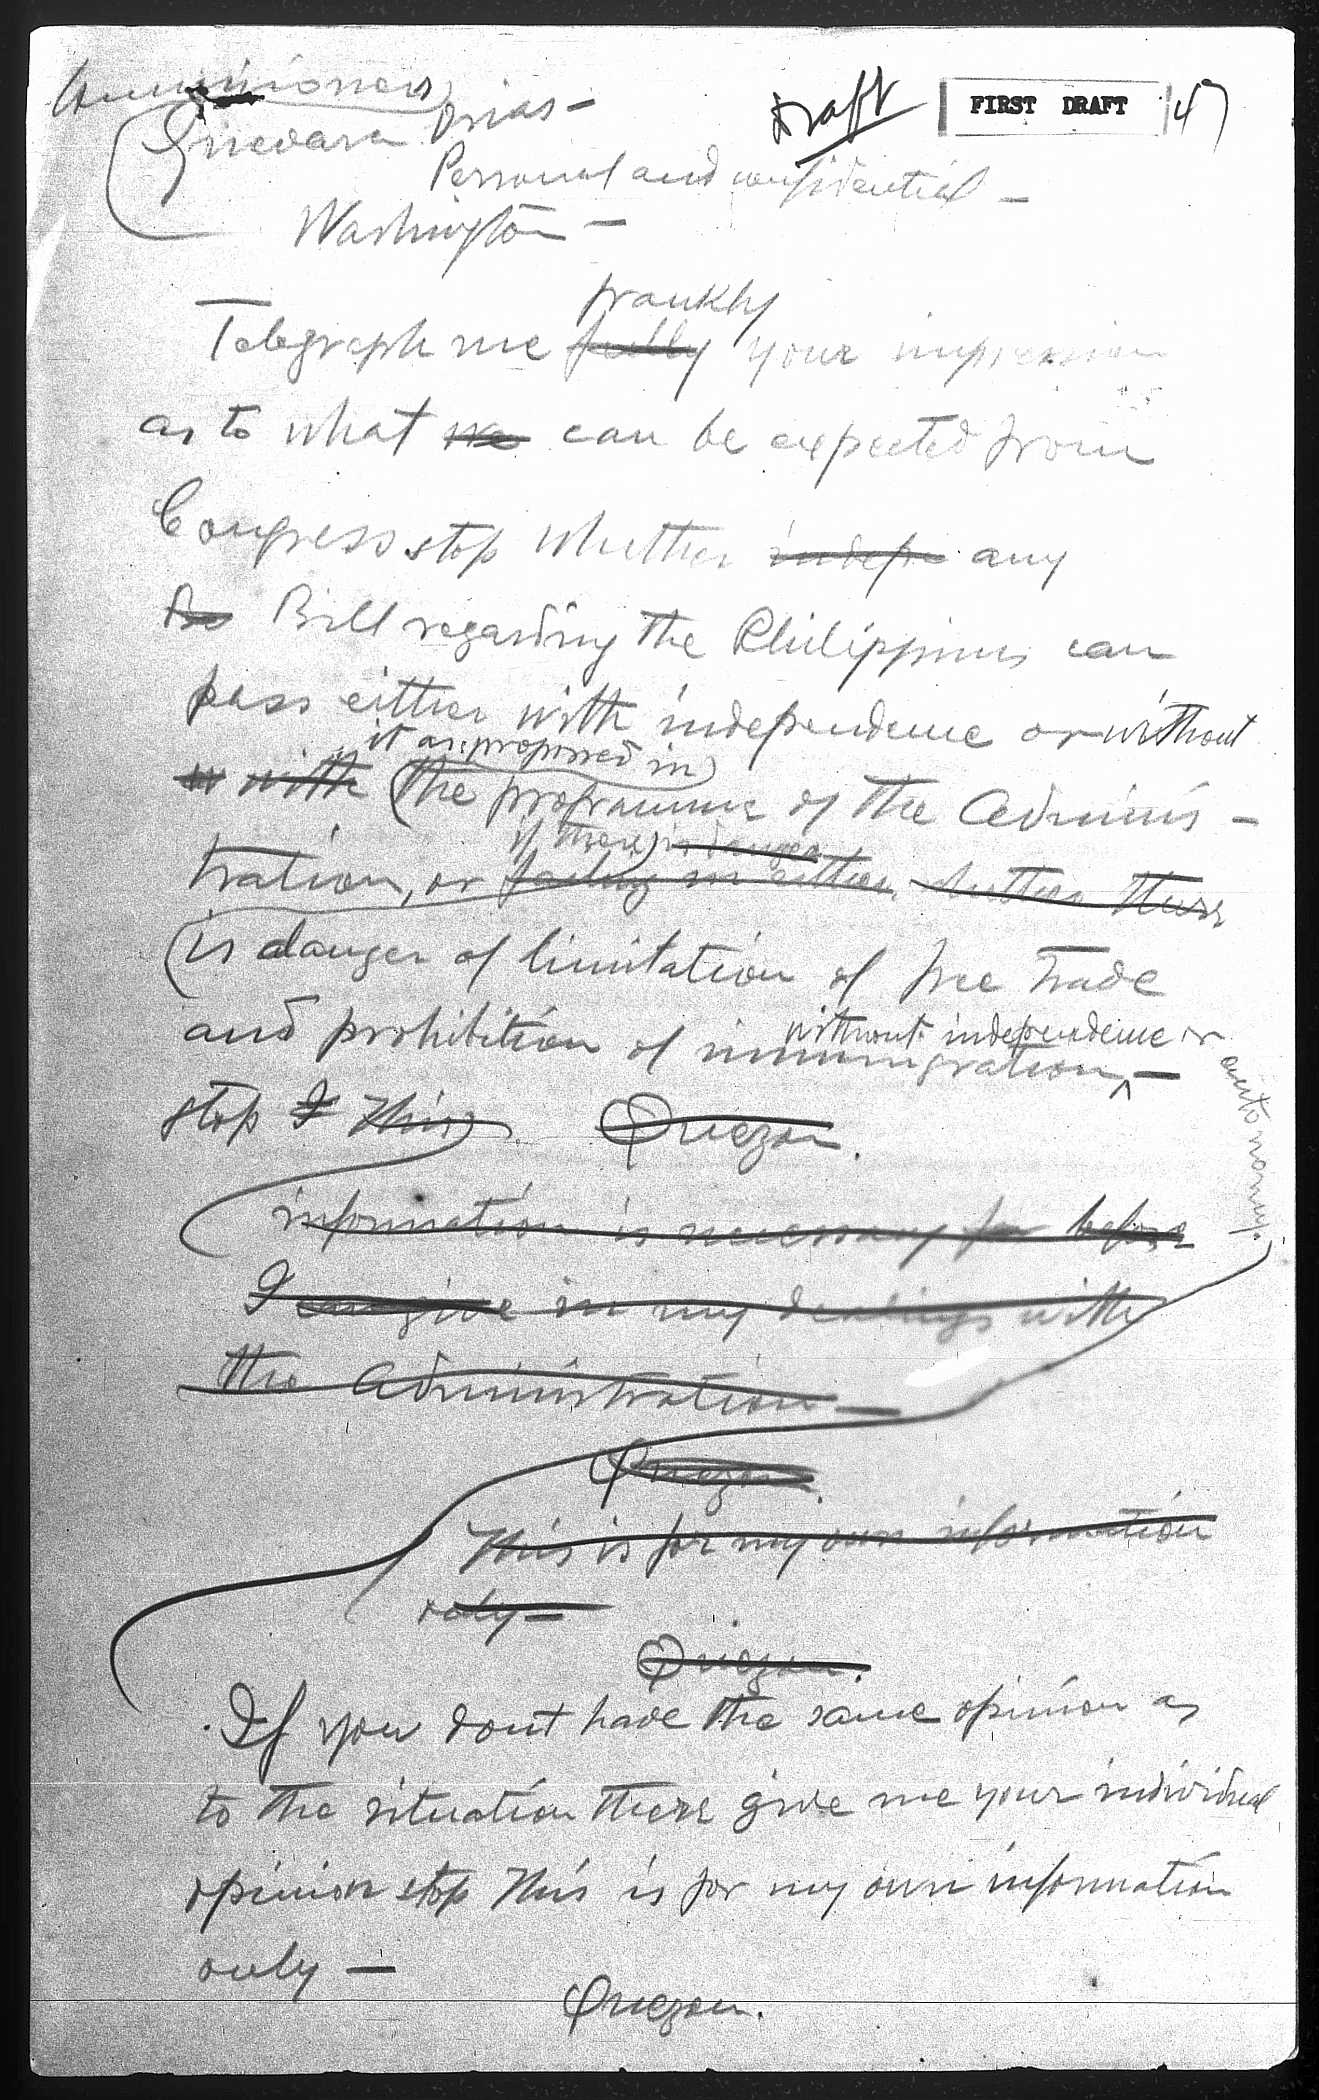 Draft FIRST DRAFT 47
Commissioners
Guevara Osias —
Personal and confidential —
Washington —
frankly
Telegraph me fully your impression
as to what we can be expected from
Congress stop whether indepe any
Bill regarding the Philippines can
pass either with independence or without
it as proposed in
with the programme of the Adminis-
if there is danger
tration, or failing in either whether there
is danger of limitation of free trade
without independence or autonomy.
and prohibition of immigration, —
stop I This Quezon.
information is necessary for before
I give in my dealings with
the Administration —
Quezon.
This is for my own information
only —
Quezon.
If you dont have the same opinion as
to the situation there give me your individual
opinion stop This is for my own information
only —
Quezon.